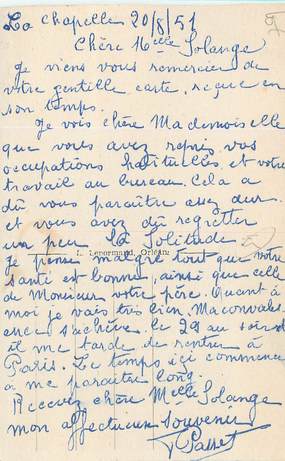 La Chapelle 20/8/51
Chère Melle Solange
Je viens vous remercier de
votre gentille carte, reçue en
son temps.
Je vois chère Mademoiselle
que vous avez repris vos
occupations habituelles et votre
travail au bureau. Cela a
dû vous paraître assez dur.
et vous avez dû regretter
un peu La Solitude
L. Lenormand, Orléans
Je pense malgré tout que votre
santé est bonne, ainsi que celle
de Monsieur votre père. Quant à
moi je vais très bien, ma convales-
cence s'achève. le 29 au soir et
il me tarde de rentrer à
Paris. Le temps ici commence
à me paraître long.
Recevez chère Melle Solange
mon affectueux souvenir